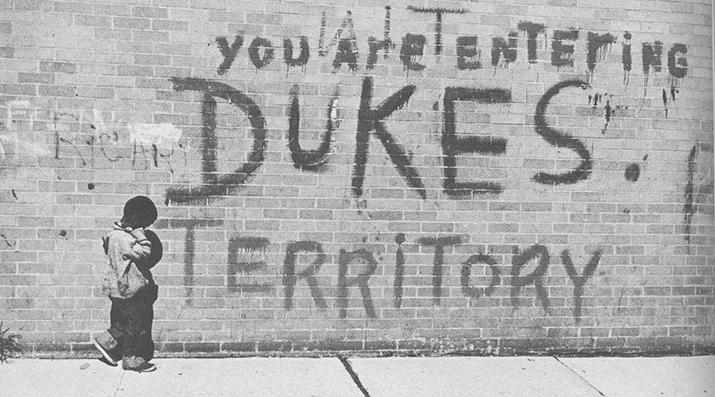 You Are Entering
DUKES.
TERRiTORY